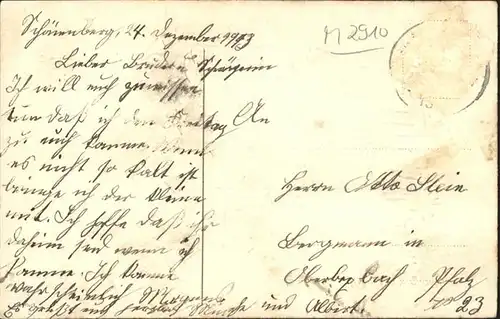 Schönenberg, 24. Dezember 1913
M 2910
Lieber Bruder u Schwägerin
Ich will euch zuwissen
tun daß ich den Freitag
zu euch komme. Wenn
es nicht so kalt ist
bringe ich der Kleine
mit. Ich hoffe daß ihr
daheim seid wenn ich
komme. Ich komme
wahrscheinlich Morgens
Es grüßt euch herzlich und Albert.
An
Herrn Otto Stein
Bergmann in
Oberbexbach Pfalz
23